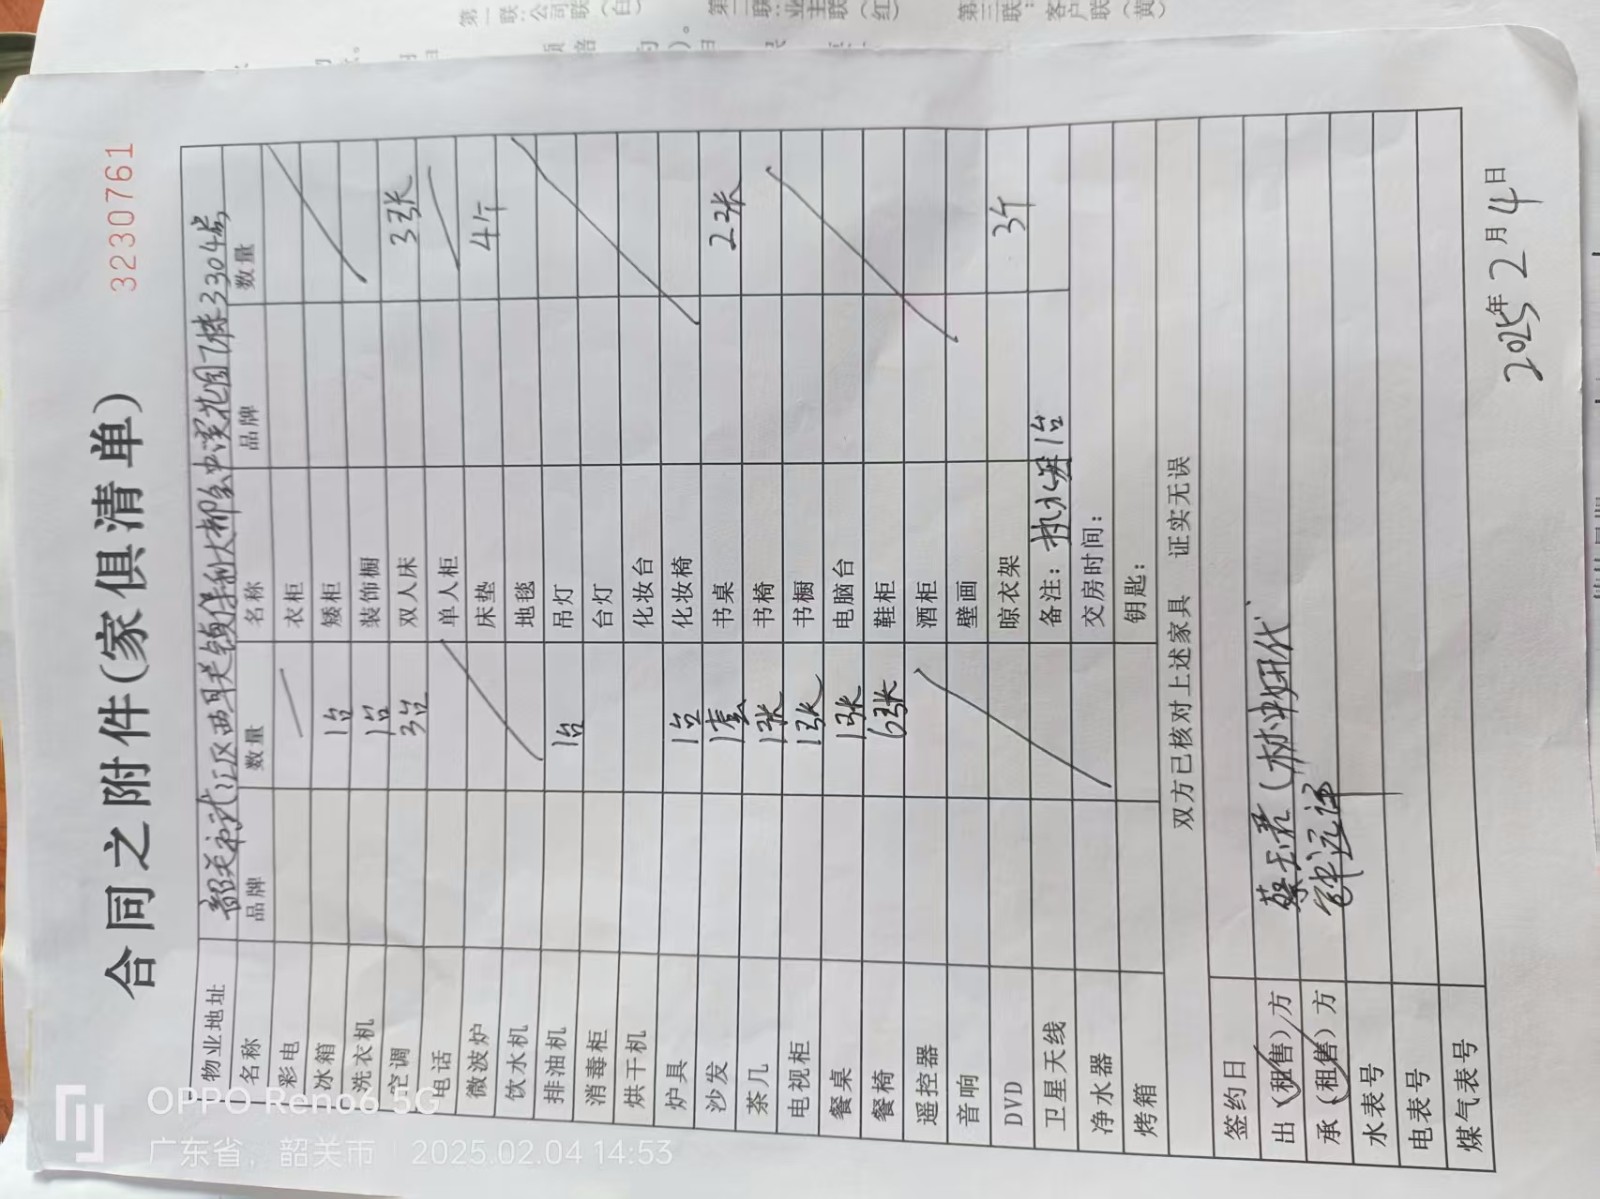 第一联：公司联（白） 第二联：业主联（红） 第三联：客户联（黄）
合同之附件(家俱清单)
3230761
物业地址 韶关市浈江区西联镇保利大都会中溪花园7栋3304号
名称 品牌 数量 名称 品牌 数量
彩电 衣柜
冰箱 1台 矮柜
洗衣机 1台 装饰橱
空调 3台 双人床 3张
电话 单人柜
微波炉 床垫 4个
饮水机 地毯
排油机 1台 吊灯
消毒柜 台灯
烘干机 化妆台
炉具 1台 化妆椅
沙发 1套 书桌 2张
茶几 1张 书椅
电视柜 1张 书橱
餐桌 1张 电脑台
餐椅 6张 鞋柜
遥控器 酒柜
音响 壁画
DVD 晾衣架 3个
卫星天线 备注：热水器1台
净水器 交房时间：
烤箱 钥匙：
双方已核对上述家具 证实无误
签约日
出（租售）方 蔡玉君（林坤明代
承（租售）方
水表号
电表号
煤气表号
2025年2月4日
OPPO Reno6 5G
广东省，韶关市 | 2025.02.04 14:53